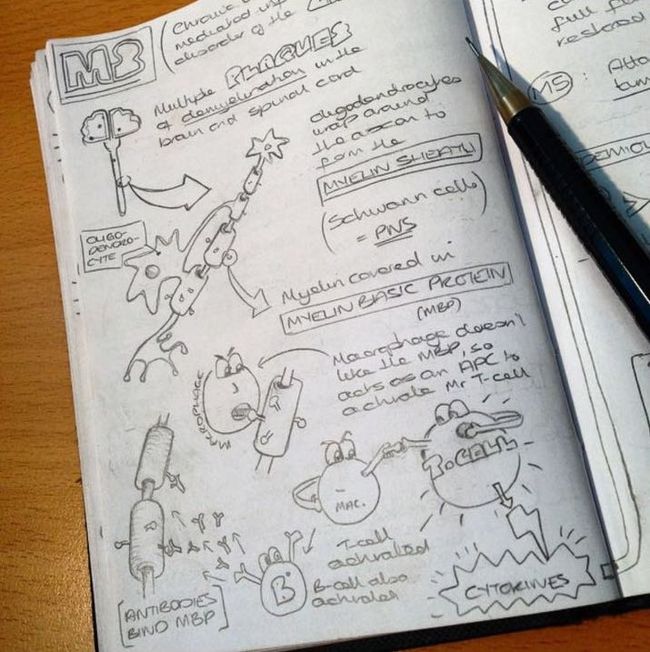 MS
(Chronic
mediated
disorder of the
Multiple PLAQUES
of demyelination in the
brain and spinal cord
oligodendrocytes
wrap around
the axon to
form the
MYELIN SHEATH
(Schwann cells)
= PNS
OLIGO-
DENDRO-
CYTE
Myelin covered in
MYELIN BASIC PROTEIN
(MBP)
Macrophage doesn't
like the MBP, so
acts as an APC to
activate Mr T-cell
MACROPHAGE
MAC.
T-CELL
T-cell
activated
B-cell also
activates
B
CYTOKINES
[ANTIBODIES
BIND MBP]
full
restored
MS :